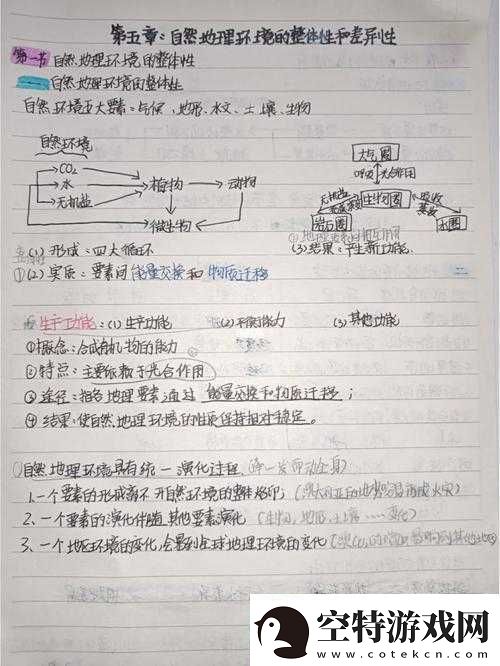 第五章：自然地理环境的整体性和差异性
第一节 自然地理环境的整体性
一 自然地理环境的整体性
自然环境五大要素：气候、地形、水文、土壤、生物
自然环境
CO₂
水
无机盐
植物
动物
微生物
大气圈
呼吸 光合作用
生物圈
岩石圈
水圈
无机盐
吸收
蒸发
(1) 形成：四大循环
(3) 结果：产生新功能
①(2) 实质：要素间能量交换和物质迁移
生产功能：(1) 生产功能 (2) 平衡能力 (3) 其他功能
①概念：合成有机物的能力
②特点：主要依赖于光合作用
③途径：相各地理要素通过能量交换和物质迁移；
④结果：使自然地理环境的性质保持相对稳定。
自然地理环境具有统一演化过程（牵一发而动全身）
1.一个要素的形成离不开自然环境的整体烙印；
2.一个要素的演化伴随其他要素演化（生物、地形、土壤……变化）
3.一个地区环境的变化，会影响到全球地理环境的变化
空特游戏网
www.cotekcn.com